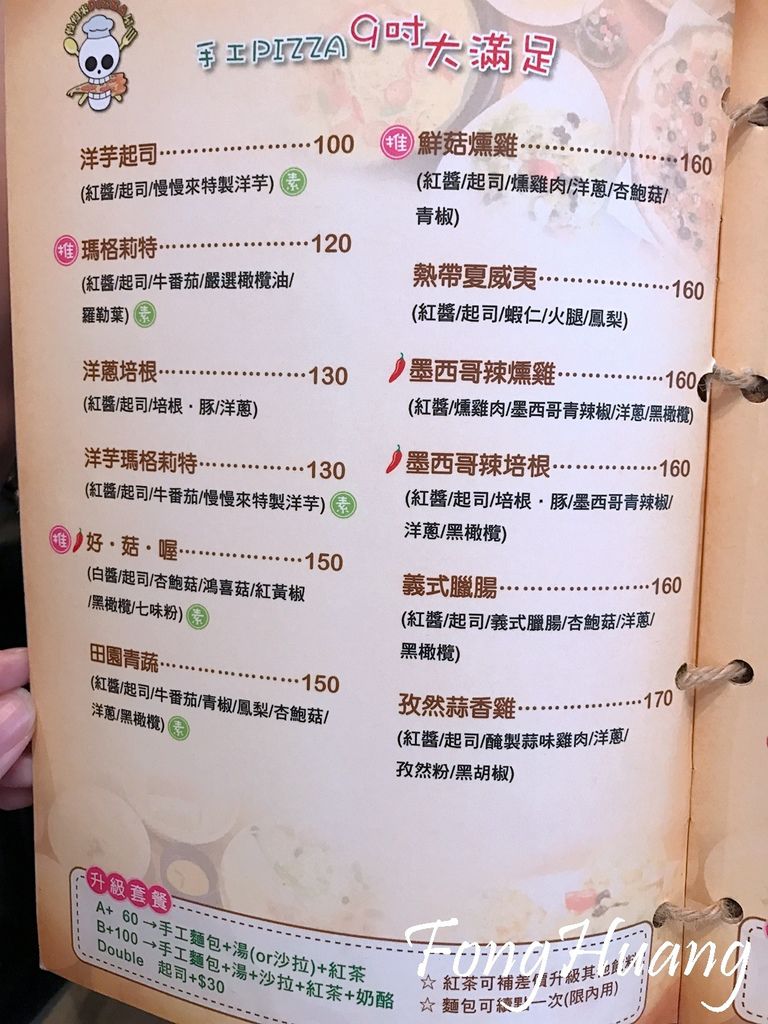 手工PIZZA 9吋大滿足
洋芋起司 100
(紅醬/起司/慢慢來特製洋芋) 素
推 瑪格莉特 120
(紅醬/起司/牛番茄/嚴選橄欖油/
羅勒葉) 素
洋蔥培根 130
(紅醬/起司/培根・豚/洋蔥)
洋芋瑪格莉特 130
(紅醬/起司/牛番茄/慢慢來特製洋芋) 素
推 好・菇・喔 150
(白醬/起司/杏鮑菇/鴻喜菇/紅黃椒
/黑橄欖/七味粉) 素
田園青蔬 150
(紅醬/起司/牛番茄/青椒/鳳梨/杏鮑菇/
洋蔥/黑橄欖) 素
推 鮮菇燻雞 160
(紅醬/起司/燻雞肉/洋蔥/杏鮑菇/
青椒)
熱帶夏威夷 160
(紅醬/起司/蝦仁/火腿/鳳梨)
墨西哥辣燻雞 160
(紅醬/燻雞肉/墨西哥青辣椒/洋蔥/黑橄欖)
墨西哥辣培根 160
(紅醬/起司/培根・豚/墨西哥青辣椒/
洋蔥/黑橄欖)
義式臘腸 160
(紅醬/起司/義式臘腸/杏鮑菇/洋蔥/
黑橄欖)
孜然蒜香雞 170
(紅醬/起司/醃製蒜味雞肉/洋蔥/
孜然粉/黑胡椒)
升級套餐
A+ 60→手工麵包+湯(or沙拉)+紅茶
B+100→手工麵包+湯+沙拉+紅茶+奶酪
Double 起司+$30
☆ 紅茶可補差 升級其他
☆ 麵包可續 一次(限內用)
FongHuang